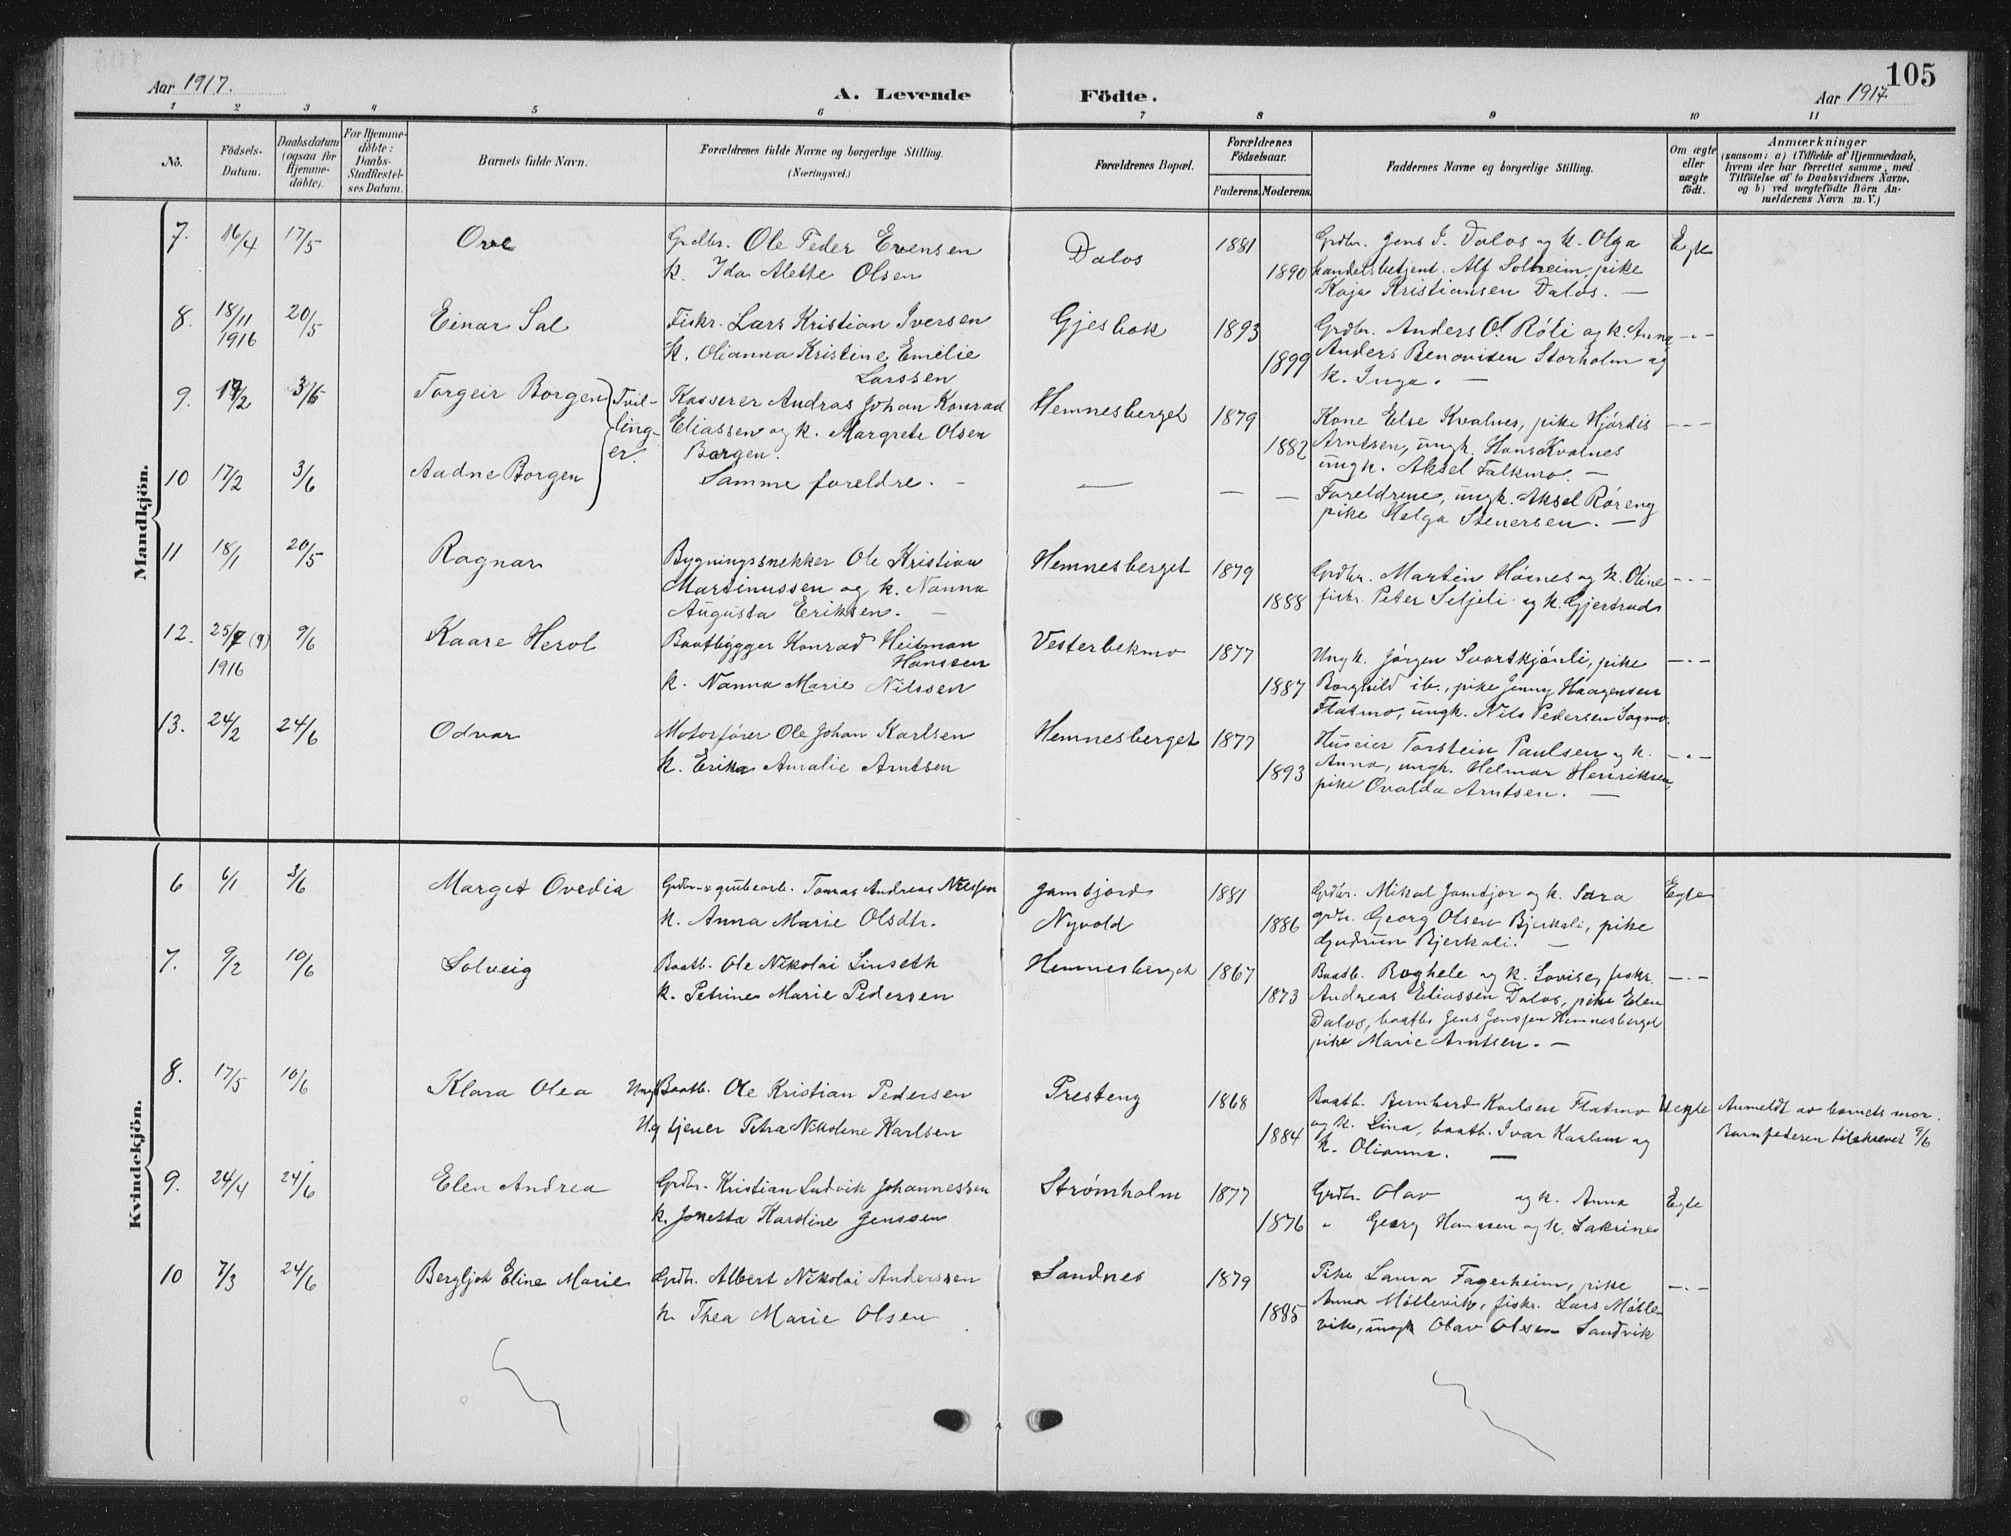 105
Aar 1917.
A. Levende Födte.
Aar 1917
1 2 3 4 5 6 7 8 9 10 11
No.
Födsels-Datum.
Daabsdatum (ogsaa for Hjemmedöbte).
For Hjemmedöbte: Daabs-Stadfæstelses Datum.
Barnets fulde Navn.
Forældrenes fulde Navne og borgerlige Stilling. (Næringsvei.)
Forældrenes Bopæl.
Forældrenes Födselsaar.
Faderens. Moderens.
Faddernes Navne og borgerlige Stilling.
Om ægte eller uægte födt.
Anmærkninger
(saasom: a) i Tilfælde af Hjemmedaab, hvem der har forrettet samme, med Tilföielse af to Daabsvidners Navne, og b) ved uægtefödte Börn Anmelderens Navn m. V.)
Mandkjön.
7. 16/4 17/5 Ove
Grdbr. Ole Peder Evensen
k. Ida Alette Olsen
Dalos 1881 1890
Grdbr. Jens J. Dalos og k. Olga
handelsbetjent. Alf Solheim, pike
Kaja Kristiansen Dalos. —
Egte
8. 18/11 1916 20/5 Einar Sal
Fiskr. Lars Kristian Iversen
k. Olianna Kristine Emelie
Larssen
Gjesbak 1893 1899
Grdbr. Anders O. Röli og k. Anna
Anders Benovisen Storholm og
k. Inga. —
— " —
9. 17/2 3/6 Torgeir Borgen
Tvil-
ling-
er.
Kasserer Andras Johan Konrad
Eliassen og k. Margrete Olsen
Borgen.
Hemnesberget 1879 1882
Kone Else Kvalnes, pike Hjördis
Arntsen, ungk. Hans Kvalnes
ungk. Aksel Falkmo. —
— " —
10 17/2 3/6 Aadne Borgen
Samme foreldre. —
— — —
Foreldrene, ungk. Aksel Röreng
pike Helga Stenersen. —
11 18/1 20/5 Ragnar
Bygningssnekker Ole Kristian
Martinussen og k. Nanna
Augusta Eriksen. —
Hemnesberget 1879 1888
Grdbr. Martin Höines og k. Oline
fiskr. Peter Seljeli og k. Gjertrud
— " —
12. 25/7 (9) 1916 9/6 Kaare Herol
Baatbygger Konrad Heitman
Hanssen
k. Nanna Marie Nilssen
Vesterbekmo 1877 1887
Ungk. Jörgen Svartkjönli, pike
Borghild ib., pike Jenny Haagensen
Flatmo, ungk. Nils Pedersen Sagmo.
— " —
13. 24/2 24/6 Odvar
Motorförer Ole Johan Karlsen
k. Erika Amalie Arntsen
Hemnesberget 1877 1893
Huseier Torstein Paulsen og k.
Anna, ungk. Helmar Henriksen,
pike Ovalda Arntsen. —
— " —
Kvindekjön.
6 6/1 3/6 Marget Ovedia
Grdbr. Tomas Andreas Nilssen
k. Anna Marie Olsdtr.
Jamtjord
Nyvold
1881 1886
Grdbr. Mikal Jamtjor og k. Sara
grdbr. Georg Olsen Bjerkali, pike
Gudrun Bjerkali. —
Egte
7. 9/2 10/6 Solveig
Baatb. Ole Nikolai Linseth
k. Petrine Marie Pedersen
Hemnesberget 1867 1873
Baatb. Roghele og k. Lovise, fiskr.
Andreas Eliassen Dalos, pike Elen
Dalos, baatb. Jens Jenssen Hemnesberget
pike Marie Arntsen. —
— " —
8. 17/5 10/6 Klara Olea
Ungk. Baatb. Ole Kristian Pedersen
Ug. tjener Petra Nikoline Karlsen
Presteng 1868 1884
Baatb. Bernhard Karlsen Flatmo
og k. Lina, baatb. Ivar Karlsen og
k. Olianna. —
Uegte
Anmeldt av barnets mor.
Barnefaderen tilskrevet 9/6
9. 24/4 24/6 Elen Andrea
Grdbr. Kristian Ludvik Johannessen
k. Jonetta Karoline Jenssen
Strømholm 1877 1876
Grdbr. Olav og k. Anna
" Georg Hanssen og k. Sakrine
Egte
10 7/3 24/6 Bergljot Eline Marie
Grdbr. Albert Nikolai Anderssen
k. Thea Marie Olsen
Sandnes 1879 1885
Pike Laura Fagerheim, pike
Anna Möllevik, fiskr. Lars Mölle-
vik, ungk Olav Olsen Sandvik
— " —